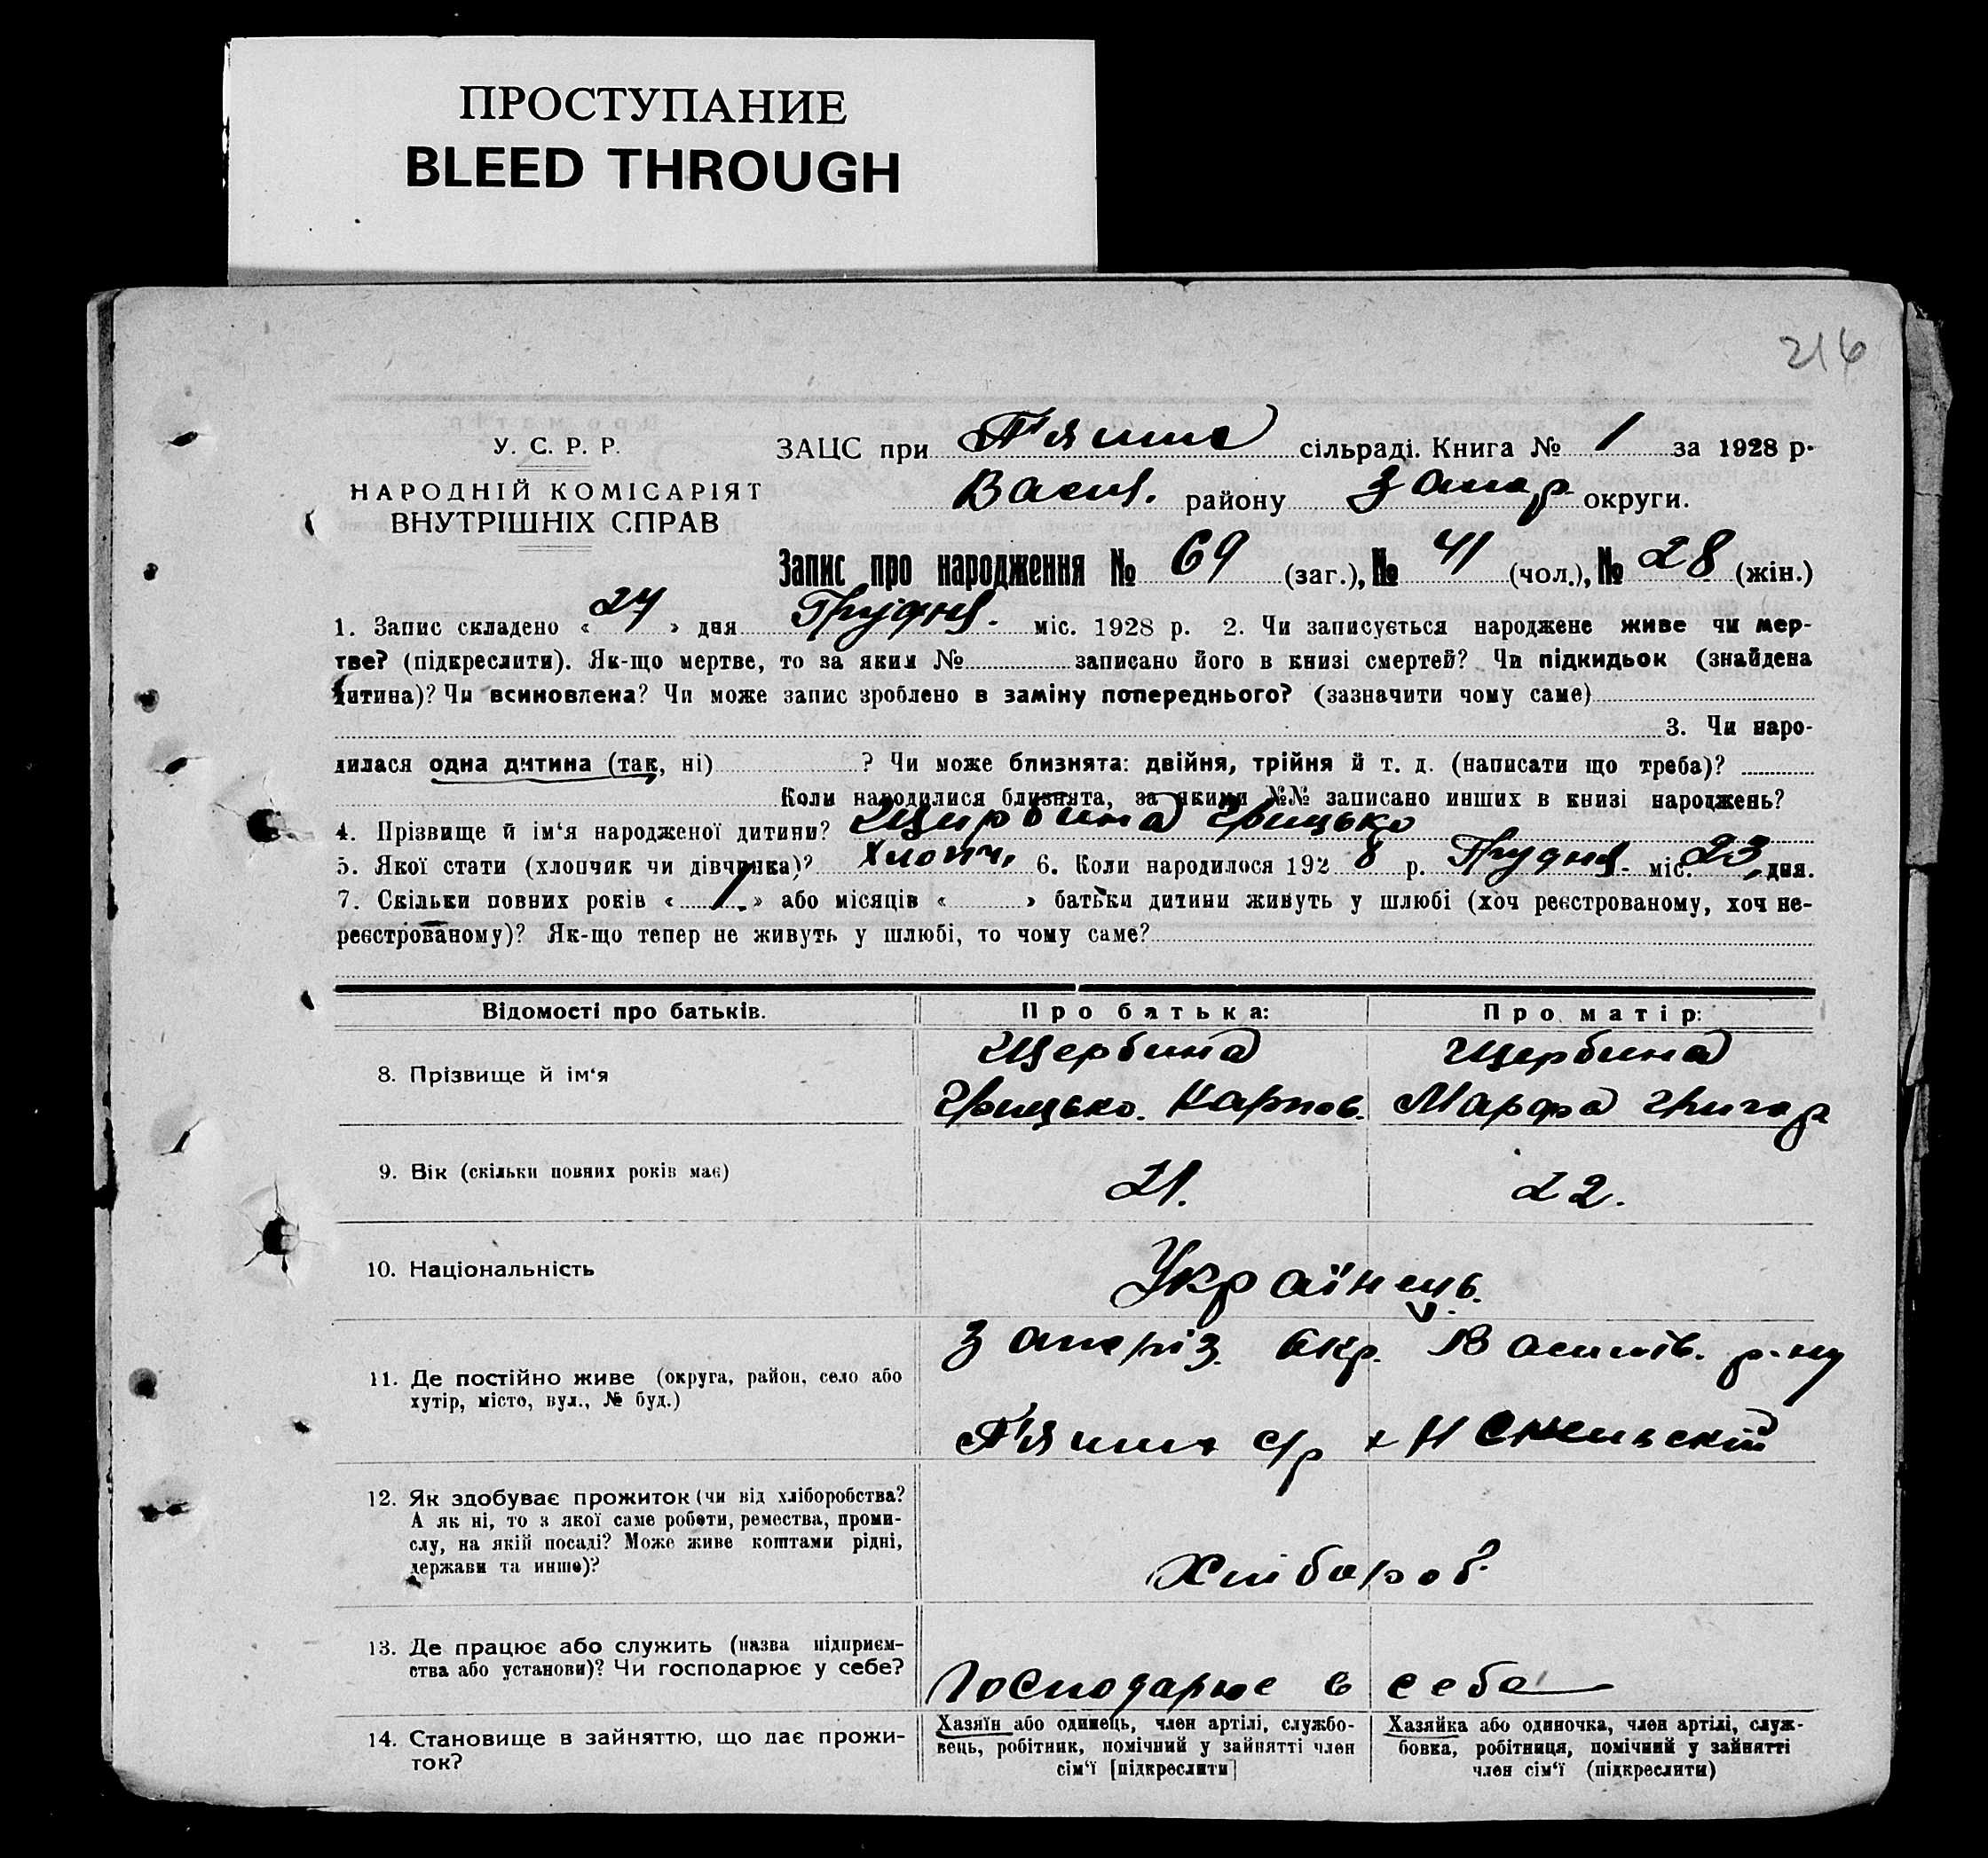 ПРОСТУПАНИЕ
BLEED THROUGH
216
У. С. Р. Р.
НАРОДНІЙ КОМІСАРІЯТ
ВНУТРІШНІХ СПРАВ
ЗАЦС при сільраді. Книга № 1 за 1928 р.
Васил. району Запор. округи.
Запис про народження № 69 (заг.), № 41 (чол.), № 28 (жін.)
1. Запис складено «27» дня Грудня. міс. 1928 р. 2. Чи записується народжене живе чи мер-
тве? (підкреслити). Як-що мертве, то за яким № записано його в книзі смертей? Чи підкидьок (знайдена
дитина)? Чи всиновлена? Чи може запис зроблено в заміну попереднього? (зазначити чому саме)
3. Чи наро-
дилася одна дитина (так, ні) ? Чи може близнята: двійня, трійня й т. д. (написати що треба)?
Коли народилися близнята, за якими №№ записано инших в книзі народжень?
4. Прізвище й ім‘я народженої дитини? Щирбина Грицько
5. Якої стати (хлопчик чи дівчинка)? Хлопч. 6. Коли народилося 1928 р. Грудня. міс. 23, дня.
7. Скільки повних років «1.» або місяців « » батьки дитини живуть у шлюбі (хоч реєстрованому, хоч не-
реєстрованому)? Як-що тепер не живуть у шлюбі, то чому саме?
Відомості про батьків. Про батька: Про матір:
8. Прізвище й ім‘я
Щербина Грицько. Карпов.
Щербина Марфа Григор
9. Вік (скільки повних років має) 21. 22.
10. Національність Українець.
11. Де постійно живе (округа, район, село або
хутір, місто, вул., № буд.)
Запоріз. Окр. Василів. р-ну
с/р х
12. Як здобуває прожиток (чи від хліборобства?
А як ні, то з якої саме роботи, ремества, проми-
слу, на якій посаді? Може живе коштами рідні,
держави та инше)?
Хлібороб.
13. Де працює або служить (назва підприєм-
ства або установи)? Чи господарює у себе?
Господарює в себе
14. Становище в зайняттю, що дає прожи-
ток?
Хазяїн або одинець, член артілі, службо-
вець, робітник, помічний у зайнятті член
сім‘ї [підкреслити]
Хазяйка або одиночка, член артілі, служ-
бовка, робітниця, помічний у зайнятті
член сім‘ї (підкреслити)